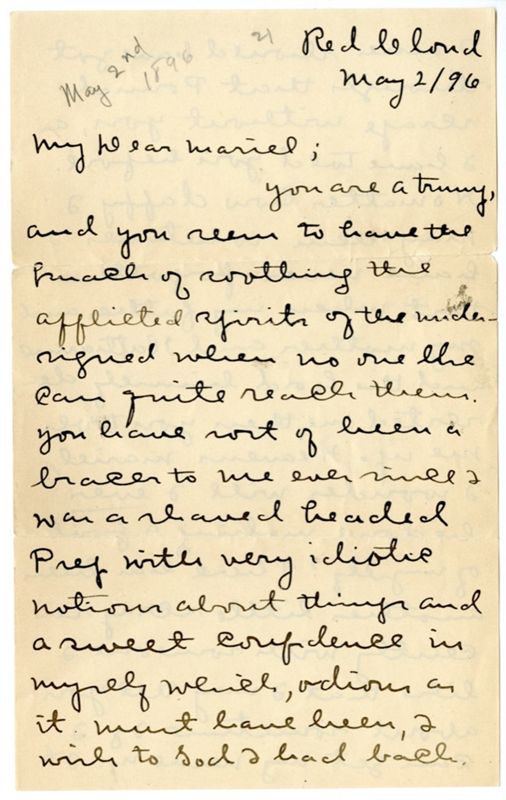 21
May 2nd
1896
Red Cloud
May 2/96
My Dear Mariel;
you are a trump,
and you seem to have the
knack of soothing the
afflicted spirits of the under-
signed when no one else
can quite reach them.
you have sort of been a
bracer to me ever since I
was a shaved headed
Prep with very idiotic
notions about things and
a sweet confidence in
myself which, odious as
it must have been, I
wish to God I had back.